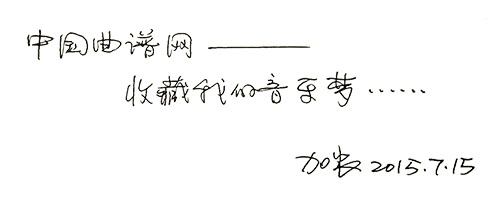 中国曲谱网———
收藏我的音乐梦……
加农 2015.7.15